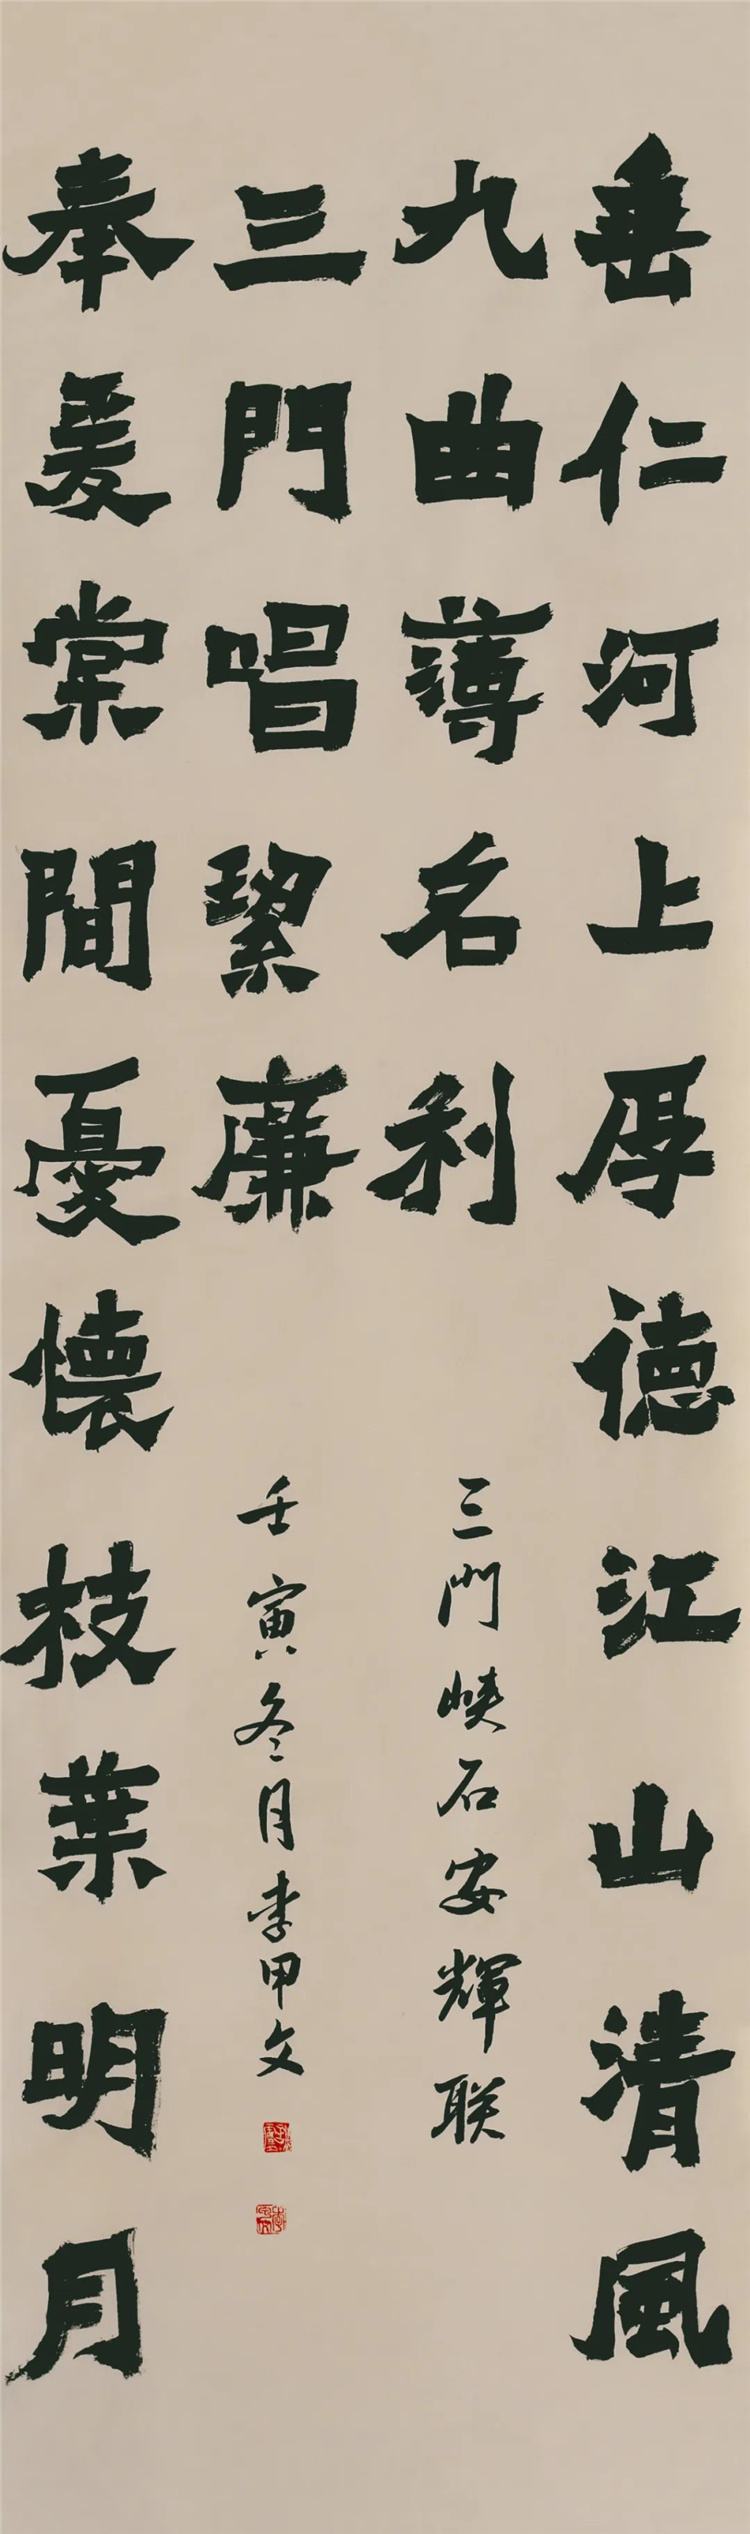 垂仁河上厚德江山清風
九曲薄名利
三門峡石安輝联
奉爰棠間憂懷枝葉明月
三門唱絜廉
壬寅冬月李甲文